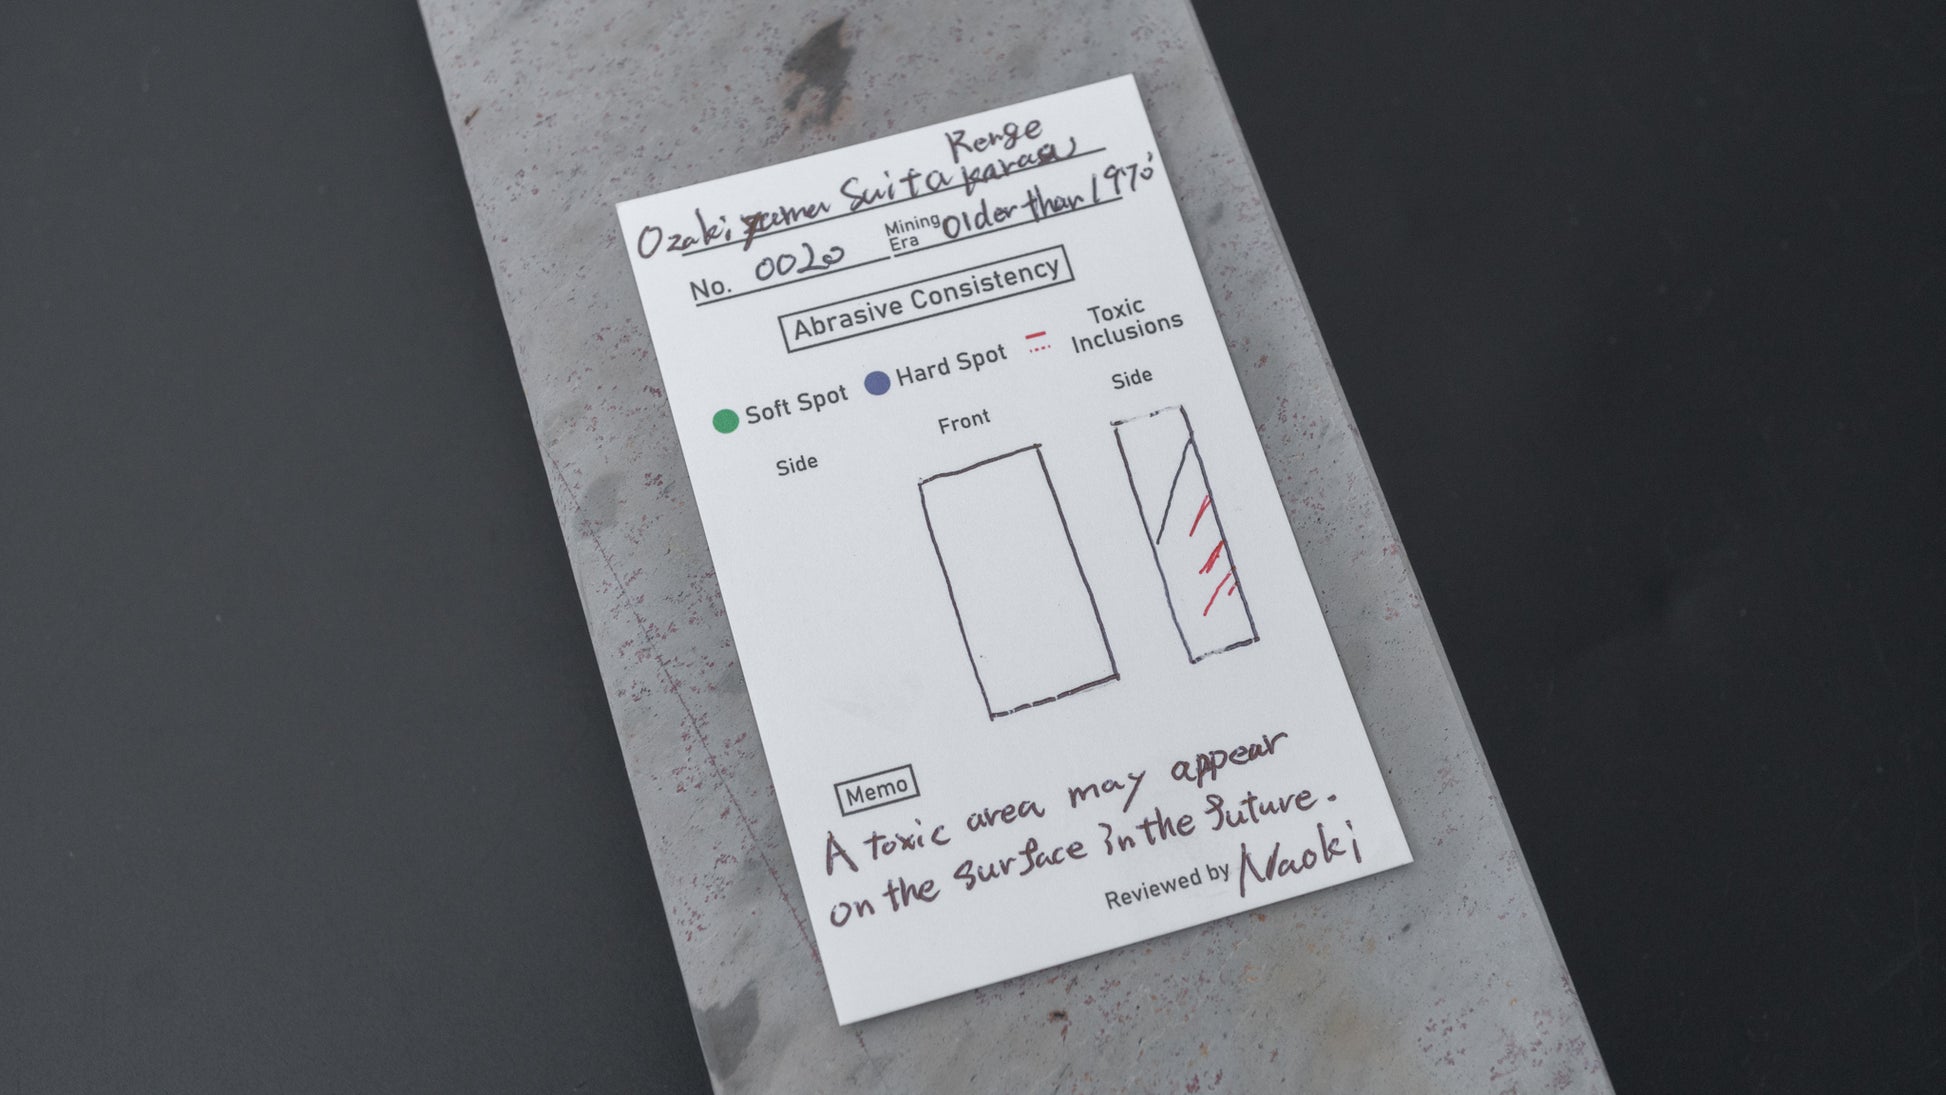 Renge
Ozaki yama Suita karasu
No. 0020 Mining Era Older than 1970'
Abrasive Consistency
Soft Spot Hard Spot Toxic Inclusions
Side Front Side
Memo
A toxic area may appear
on the surface in the future.
Reviewed by Naoki